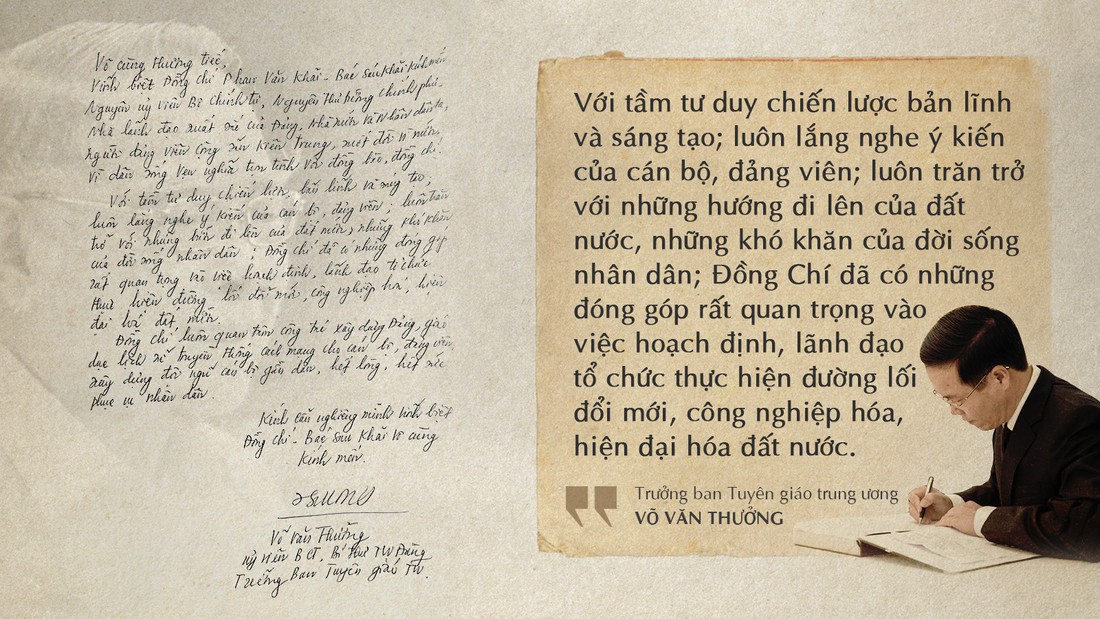 Vô cùng thương tiếc,
Vĩnh biệt Đồng chí Phan Văn Khải - Bác Sáu Khải kính mến
Nguyên uỷ viên Bộ Chính trị, Nguyên Thủ tướng Chính phủ -
Nhà lãnh đạo xuất sắc của Đảng, Nhà nước và Nhân dân ta,
người đảng viên cộng sản kiên trung, suốt đời vì nước,
vì dân sống vẹn nghĩa trọn tình với đồng bào, đồng chí.
Với tầm tư duy chiến lược, bản lĩnh và sáng tạo;
luôn lắng nghe ý kiến của cán bộ, đảng viên; luôn trăn
trở với những hướng đi lên của đất nước, những khó khăn
của đời sống nhân dân; Đồng chí đã có những đóng góp
rất quan trọng vào việc hoạch định, lãnh đạo tổ chức
thực hiện đường lối đổi mới, công nghiệp hoá, hiện
đại hoá đất nước.
Đồng chí luôn quan tâm công tác xây dựng Đảng, giáo
dục lịch sử truyền thống cách mạng cho cán bộ, đảng viên,
xây dựng đội ngũ cán bộ gần dân, hết lòng, hết sức
phục vụ nhân dân.
Kính cẩn nghiêng mình vĩnh biệt
Đồng chí - Bác Sáu Khải vô cùng
kính mến.
Võ Văn Thưởng
Uỷ viên BCT, Bí thư TW Đảng
Trưởng Ban Tuyên giáo TW.
Với tầm tư duy chiến lược bản lĩnh
và sáng tạo; luôn lắng nghe ý kiến
của cán bộ, đảng viên; luôn trăn trở
với những hướng đi lên của đất
nước, những khó khăn của đời sống
nhân dân; Đồng Chí đã có những
đóng góp rất quan trọng vào
việc hoạch định, lãnh đạo
tổ chức thực hiện đường lối
đổi mới, công nghiệp hóa,
hiện đại hóa đất nước.
Trưởng ban Tuyên giáo trung ương
VÕ VĂN THƯỞNG